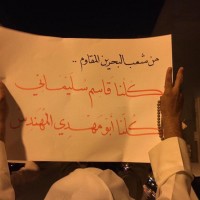 من شعب البحرين المقاوم ..
كلنا قاسم سليماني
كلنا أبو مهدي المهندس